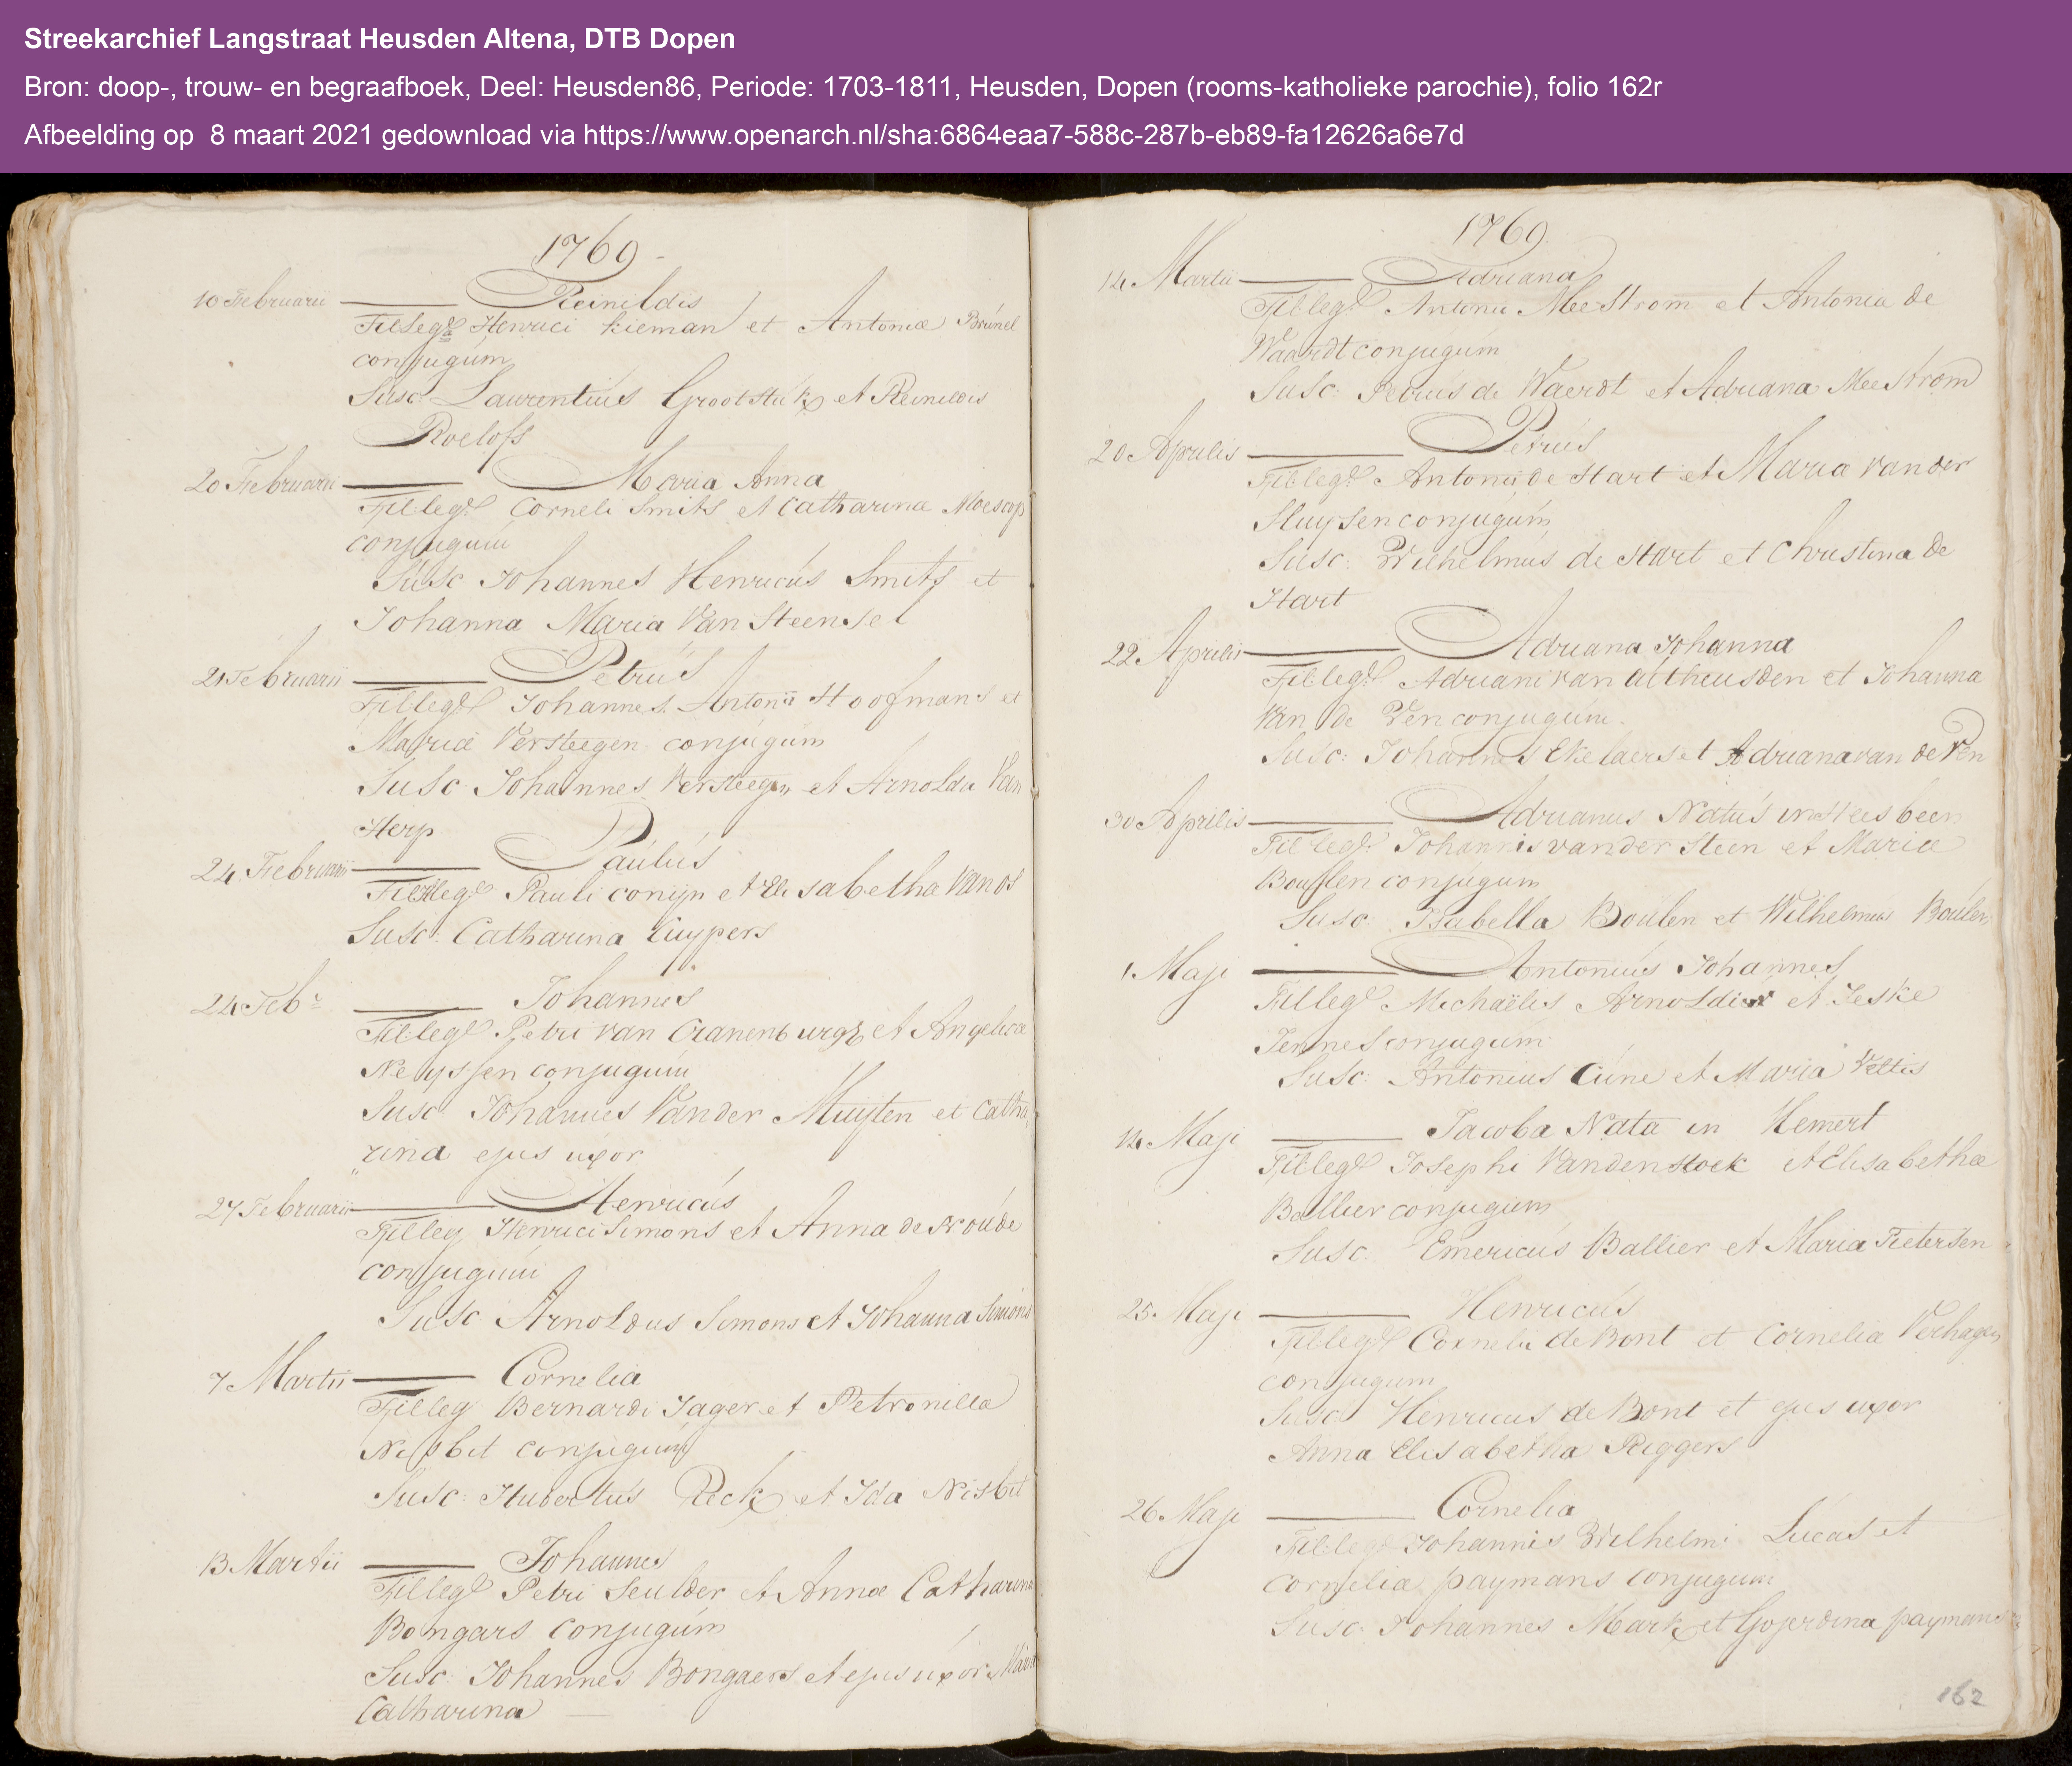 Streekarchief Langstraat Heusden Altena, DTB Dopen
Bron: doop-, trouw- en begraafboek, Deel: Heusden86, Periode: 1703-1811, Heusden, Dopen (rooms-katholieke parochie), folio 162r
Afbeelding op 8 maart 2021 gedownload via https://www.openarch.nl/sha:6864eaa7-588c-287b-eb89-fa12626a6e7d
1769
10 Februarii Reinildis
Fil legª Henrici Kieman et Antoniæ Brúnel
conjugúm
Susc Laurentiús Grootstúk et Reinildis
Roelofs
20 Februarii Maria Anna
Fil leg Corneli Smits et Catharinæ Moescop
conjugum
Susc Johannes Henricús Smits et
Johanna Maria Van Steensel
21 Februarii Petrús
Fil leg Johannes Antonii Hoofmans et
Mariæ Versteegen conjúgúm
Susc Johannes Versteegen et Arnolda Van
Herp
24 Februarii Paúlús
Fil leg Pauli conijn et Elisabetha Van os
Susc: Catharina Cuypers
24 Febr Johannes
Fil leg Petri van Cranenburgh et Angelicæ
Neyssen conjugúm
Susc. Johannes Vander Muysen et Catha
rina ejus uxor
27 Februarii Henricús
Fil leg Henrici Simons et Anna de Froúde
conjugúm
Susc Arnoldus Simons et Johanna Simons
7 Martii Cornelia
Fil leg Bernardi Jager et Petronilla
Nisbit conjugúm
Susc: Hubertus Reck et Ida Nisbit
13 Martii Johannes
Fil leg Petri Seulder et Annæ Catharina
Bongars conjugúm
Susc Johannes Bongaers et ejus uxor Maria
Catharina
1769
14 Martii Adriana
Fil leg Antonii Meestrom et Antonia de
Waardt conjugúm
Susc: Petrús de Waerdt et Adriana Meestrom
20 Aprilis Petrús
Fil leg Antonii de Hart et Maria van der
Sluysen conjugúm
Susc: Wilhelmús de Hart et Christina de
Hart
22 Aprilis Adriana Johanna
Fil leg Adriani van Altheusden et Johanna
Van de Ven conjugúm.
Susc: Johannes Ekelaers et Adriana van de Ven
30 Aprilis Adrianus Natús in Heesbeen
Fil leg Johannis van der Steen et Mariæ
Boullen conjúgum
Susc: Isabella Boúlen et Wilhelmus Boúlen
1 Maji Antoniús Johannes
Fil leg Michaëlis Arnoldi et Jeske
Jennes conjúgúm
Susc: Antonius Cúne et Maria Veltis
14 Maji Jacoba Nata in Hemert
Fil leg Josephi Vandenstock et Elisabethæ
Ballier conjugúm
Susc. Emericús Ballier et Maria Pietersen
25 Maji Henricús
Fil leg Cornelii de Bont et Corneliæ Verhagen
conjugum
Susc Henricus de Bont et ejus uxor
Anna Elisabetha Riggers
26 Maji Cornelia
Fil leg Johannis Wilhelmi Lúcas et
Corneliæ paymans conjugum
Susc: Johannes Mark et Gojerdina paymans
162